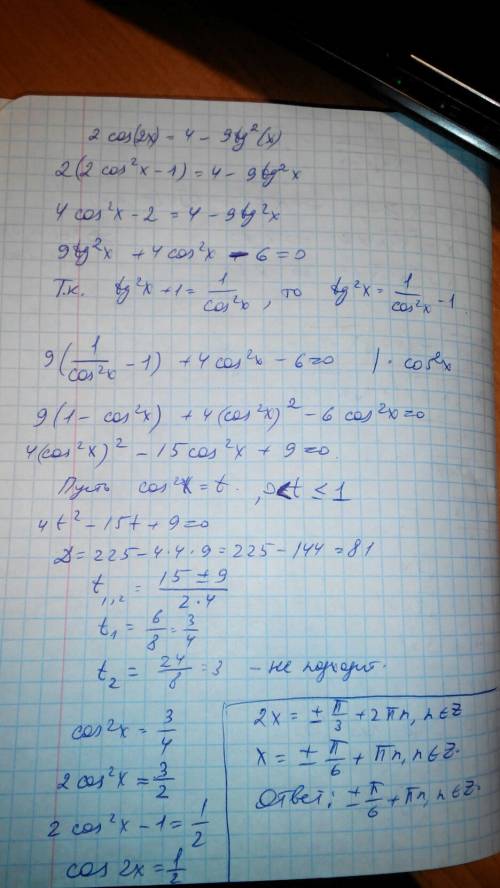 2 cos(2x) = 4 - 9tg²(x)
2(2cos²x - 1) = 4 - 9tg²x
4cos²x - 2 = 4 - 9tg²x
9tg²x + 4cos²x - 6 = 0
Т.к. tg²x + 1 = 1/cos²x, то tg²x = 1/cos²x - 1
9(1/cos²x - 1) + 4cos²x - 6 = 0 | · cos²x
9(1 - cos²x) + 4(cos²x)² - 6cos²x = 0
4(cos²x)² - 15cos²x + 9 = 0.
Пусть cos²x = t, 0 < t ≤ 1
4t² - 15t + 9 = 0
D = 225 - 4·4·9 = 225 - 144 = 81
t₁,₂ = (15 ± 9)/(2·4)
t₁ = 6/8 = 3/4
t₂ = 24/8 = 3 - не подходит.
cos²x = 3/4
2cos²x = 3/2
2cos²x - 1 = 1/2
cos 2x = 1/2
2x = ± π/3 + 2πn, n∈Z
x = ± π/6 + πn, n∈Z.
Ответ: ± π/6 + πn, n∈Z.